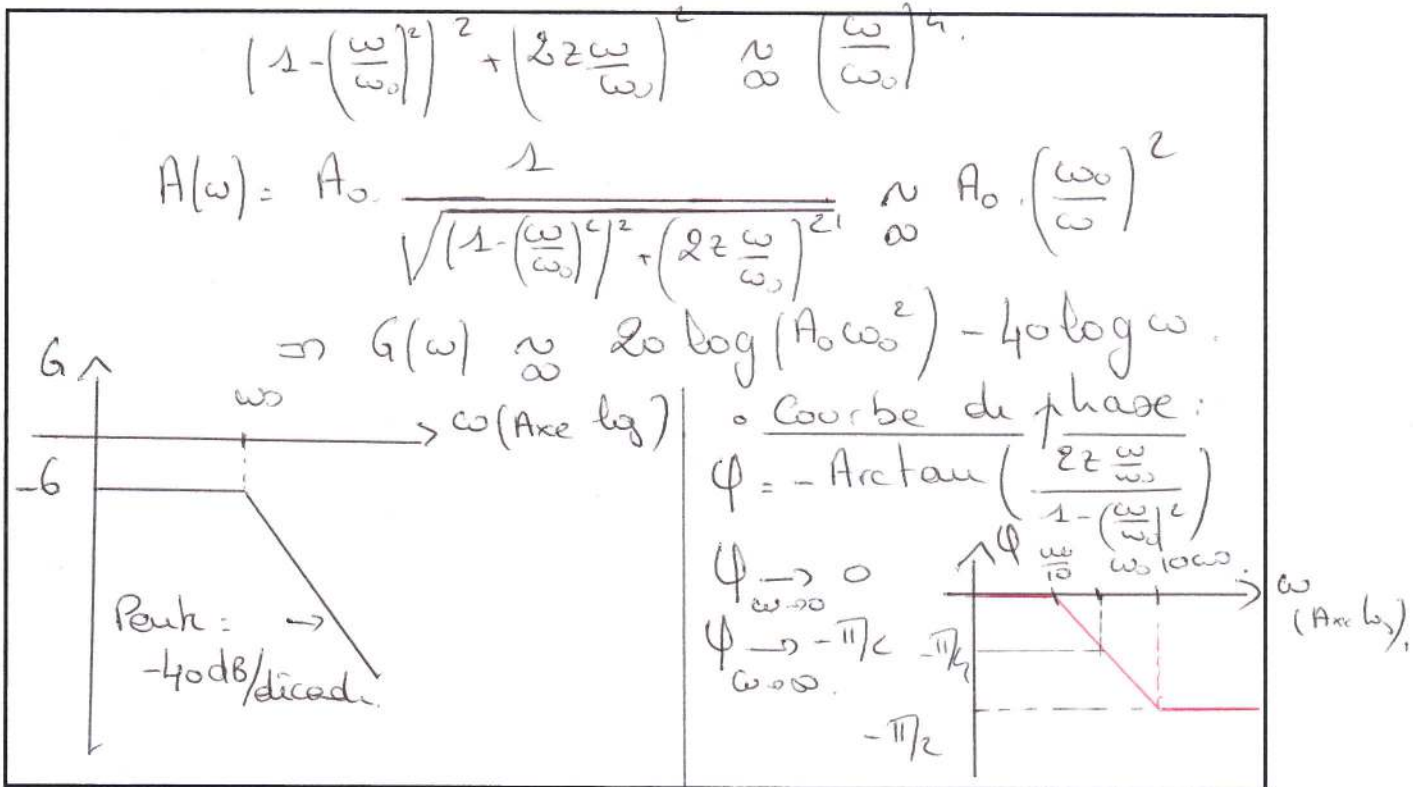 (1-(ω/ω₀)²)² + (2zω/ω₀)² ~∞ (ω/ω₀)⁴.
A(ω) = A₀. 1/√((1-(ω/ω₀)²)² + (2z ω/ω₀)²) ~∞ A₀.(ω₀/ω)²
=> G(ω) ~∞ 20 log(A₀ω₀²) - 40 log ω.
G
ω₀
ω (Axe log)
-6
Pente : →
-40dB/décade.
• Courbe de phase :
φ = -Arctan(2z ω/ω₀ / 1-(ω/ω₀)²)
φ → 0
ω→0
φ → -π/2
ω→∞.
φ ω₀/10 ω₀ 10ω₀.
ω
(Axe log).
-π/4
-π/2